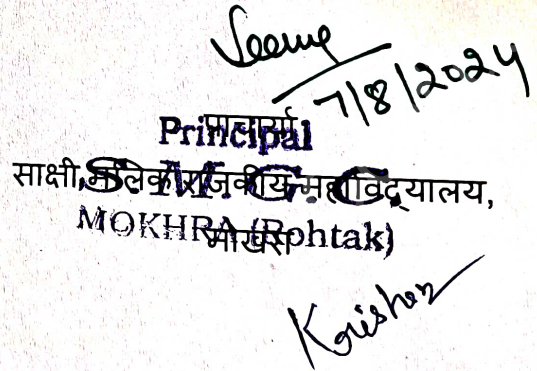 Seema
7/8/2024
प्राचार्या
Principal
साक्षी मलिक राजकीय महाविद्यालय,
S. M. G. C.
MOKHRA (Rohtak)
मोखरा
Krishan